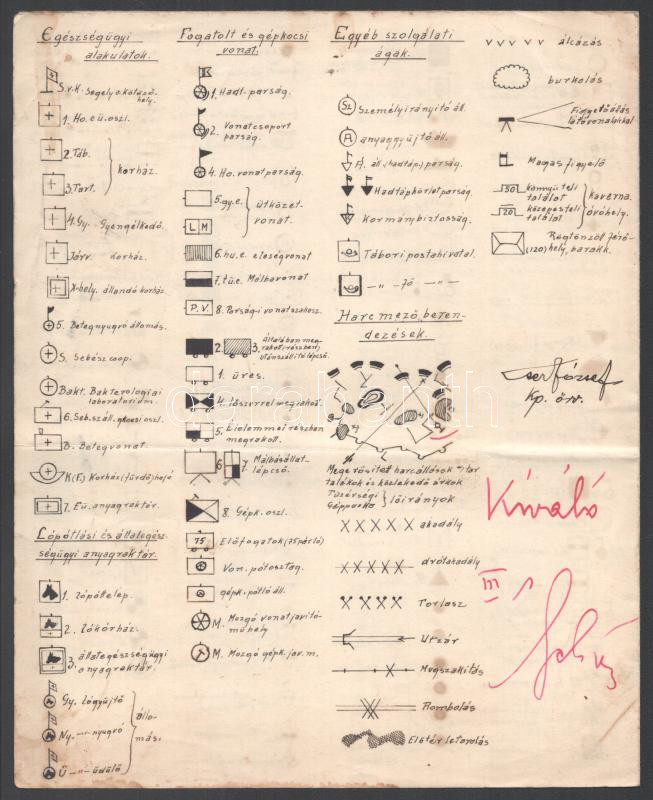 Egészségügyi
alakulatok.
S.v.K. Segély a.kötöző-
hely.
1. Ho. eü. oszl.
2. Táb.
3. Tart.
korház.
4. Gy. Gyengélkedő.
Járv. korház.
X-hely. állandó korház.
5. Betegnyugvó állomás.
S. Sebész csop.
Bakt. Bakterologiai
laboratorium.
6. Seb.száll. gkocsi oszl.
B. Betegvonat.
K(F.) Korház (fürdő) hajó
7. Eü. anyagraktár.
Lópótlási és állategész-
ségügyi anyagraktár.
1. Lópóttelep.
2. Lókórház.
3. állategészségügyi
anyagraktár.
Gy. Lógyüjtő
Ny. -"- nyugvó
Ü -"- üdülő
állo-
más.
Fogatolt és gépkocsi
vonat.
1. Hadt. parság.
2. Vonatcsoport
parság.
4. Ho. vonatparság.
5. gy.e.
L M
ütközet-
vonat.
6. hu. e. élésegvonat
7. tü. e. Málhavonat
P.V. 8. Parság-i vonatszakasz.
2. 3. Általában meg-
rakott (részben)
utánszállító lépcső.
1. üres.
4. lőszerrel megrakott.
5. Élelemmel részben
megrakott.
6 7. Málhásállat-
lépcső.
8. Gépk. oszl.
75 Előfogatok (75 pár ló)
Von. pótosztag.
gépk. pótló áll.
M. Mozgó vonatjavító-
műhely
M. Mozgó gépk. jav. m.
Egyéb szolgálati
ágak.
Sz Személyirányító áll.
A anyaggyüjtő áll.
A. áll. (hadtáp.) parság.
Hadtápkörlet parság.
Kormánybiztosság.
Tábori postahivatal.
-"- -"- fő -"- -"-
Harcmező beren-
dezések.
Megerősített harcállások
Tüzérségi
Géppuska
lőirányok
akadály
drótakadály
Torlasz
Utzár
Megszakítás
Rombolás
Előtér letarolás
álcázás
burkolás
Figyelőállás
látóvonalakkal
Magas figyelő
30 könnyű teli
találat
20 középes teli
találat
kaverna.
óvóhely.
Rögtönzött férő-
(120) hely, barakk.
kp. örv.
Kiváló
III